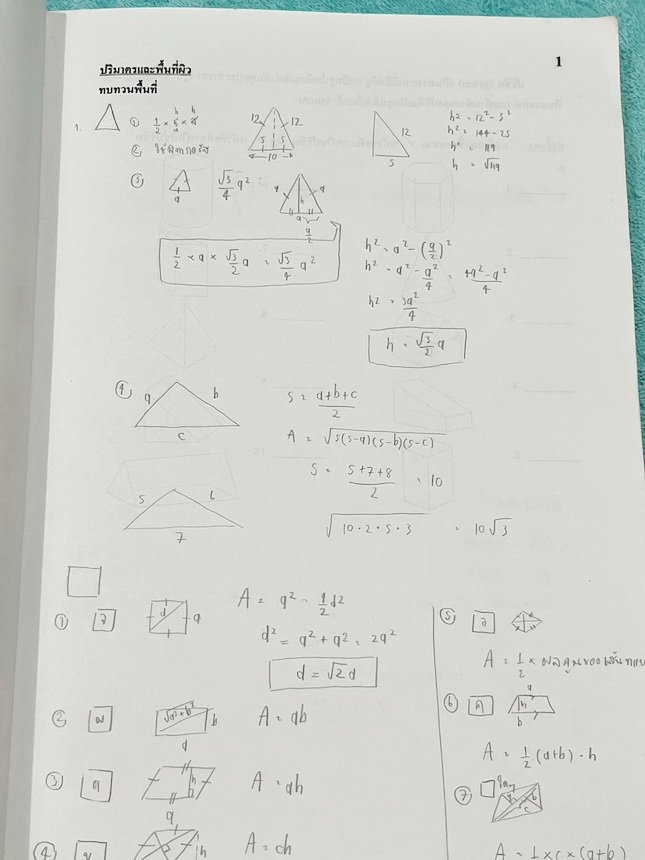 1
ปริมาตรและพื้นที่ผิว
ทบทวนพื้นที่
1. ① 1/2 × ฐ × ส
b h
12 12
5 5
10
12
5
h² = 12² - 5²
h² = 144 - 25
h² = 119
h = √119
②
③ a
√3/4 a²
a a
h
a
a/2
1/2 × a × √3/2 a = √3/4 a²
h² = a² - (a/2)²
h² = a² - a²/4 = 4a² - a²/4
h² = 3a²/4
h = √3/2 a
④ a b
c
s = a+b+c/2
A = √s(s-a)(s-b)(s-c)
s = 5+7+8/2 = 10
5
7
√10·2·5·3 = 10√3
① จ
d a
A = a² = 1/2 d²
d² = a² + a² = 2a²
d = √2 d
② ผ
√a²+b² b
a
A = ab
③
h
a
A = ah
④
h
A = ch
⑤ ว
A = 1/2 × ผลคูณของเส้นทแย
⑥ ค
a
h
b
A = 1/2 (a+b) · h
⑦
a b
c
A = 1/2 × c × (a+b)